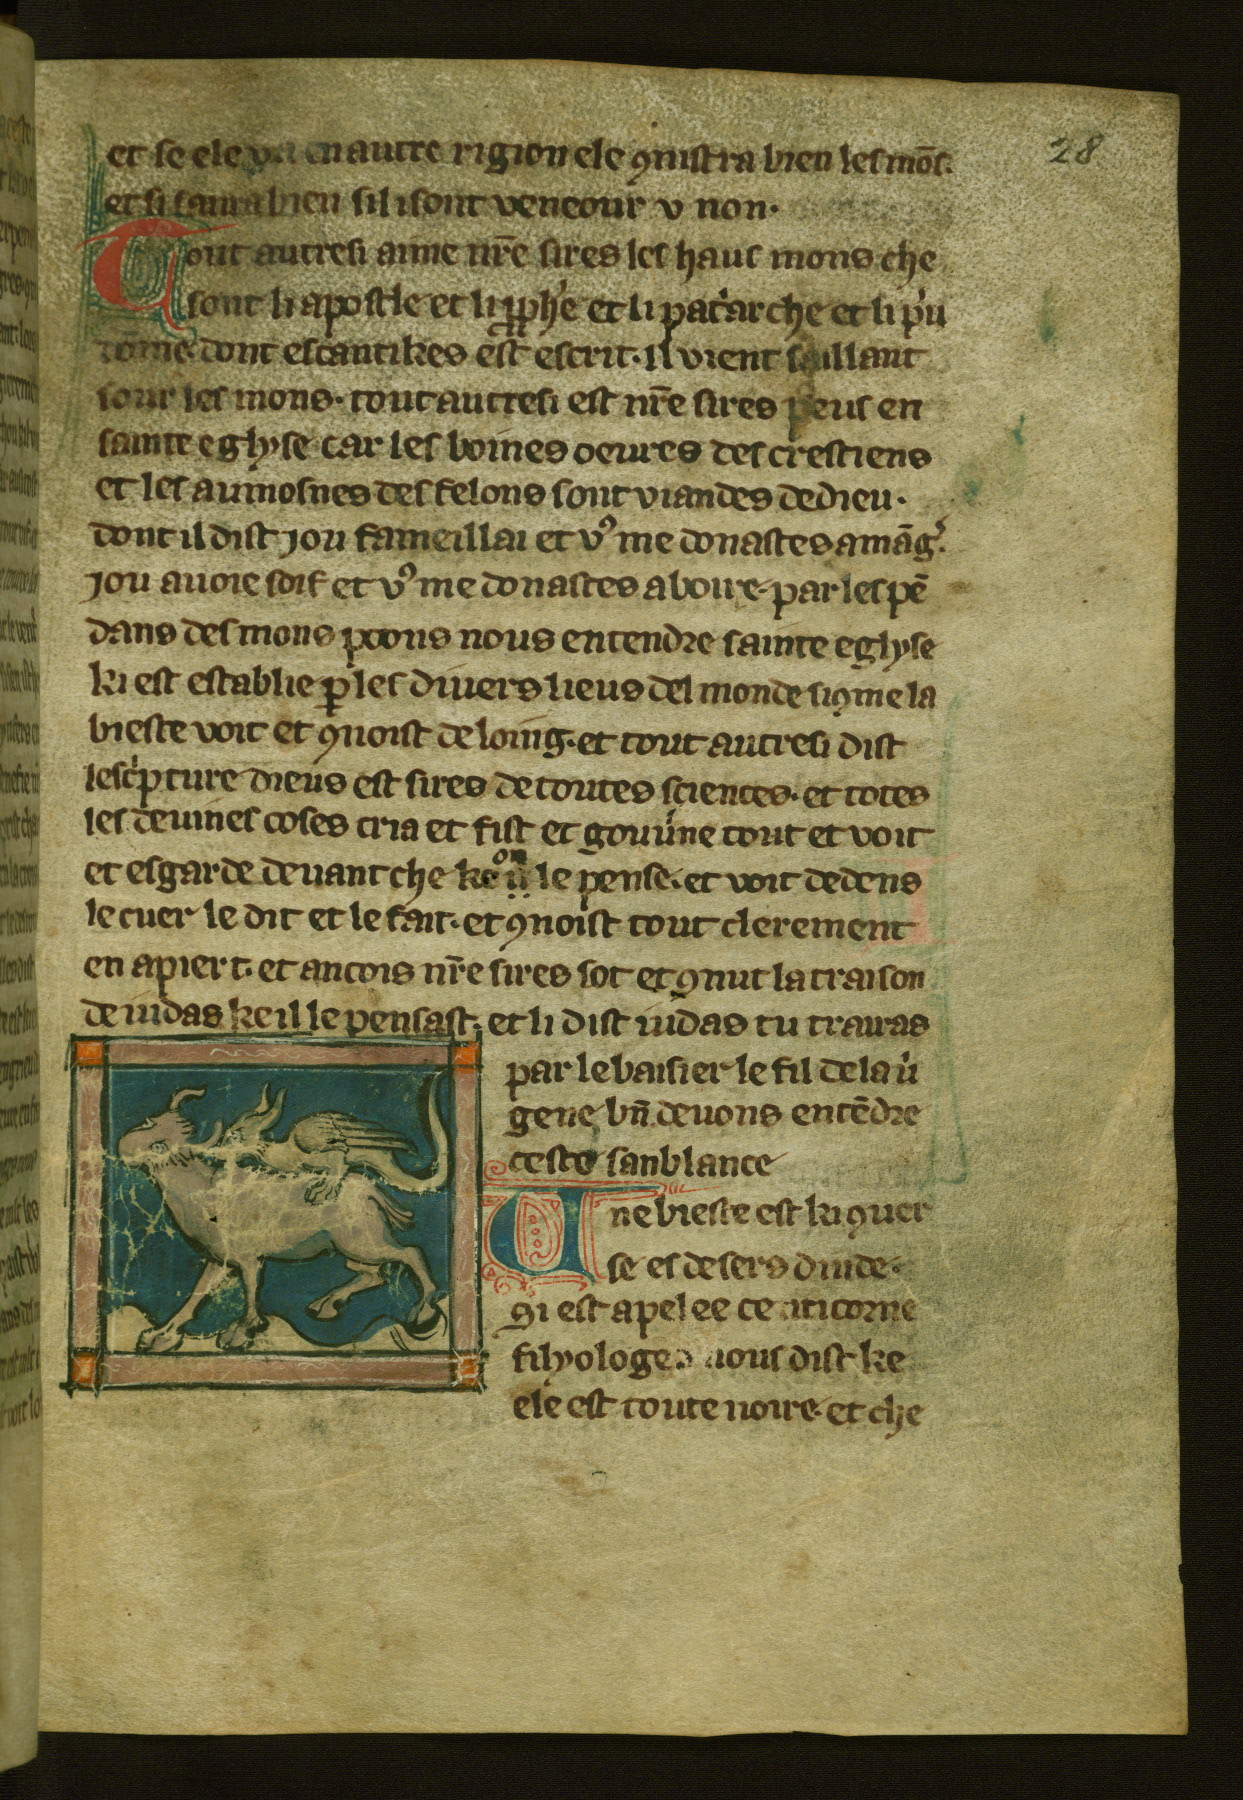 28
et se ele va en autre rigion ele ꝯnistra bien les mōs.
et si saura bien sil i sont veneour v non.
Tout autresi aime nr̄e sires les haus mons che
sont li apostle et li ꝓph'e et li pat'arche et li p'u
dōme. dont es cantikes est escrit. il vient saillant
sour les mons. tout autresi est nr̄e sires peus en
sainte eglyse car les boines oeures des crestiens
et les aumosnes des felons sont viandes de dieu.
dont il dist jou fameillai et vꝰ me donastes a māg'.
jou auoie soif et vꝰ me donastes a boire. par les pē
dans des mons poons nous entendre sainte eglyse
ki est establie ꝑ les diuers lieus del monde si ꝯme la
bieste voit et ꝯnoist de loing. et tout autresi dist
lesc'pture dieus est sires de toutes sciences. et totes
les deuines coses cria et fist et gouu'ne tout et voit
et esgarde deuant che ke on le pense. et voit dedens
le cuer le dit et le fait. et ꝯnoist tout clerement
en apiert. et ancois nr̄e sires sot et ꝯnut la traison
de iudas ke il le pensast. et li dist iudas tu trairas
par le baisier le fil de la u'
gene bn̄ deuons entēdre
ceste sanblance
Vne bieste est ki ꝯuer
se es desers dinde.
qi est apelee centicorne
filyologes nous dist ke
ele est toute noire. et che